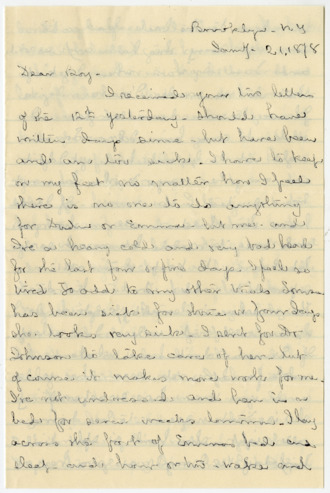 Brooklyn. N.Y
Jany. 21, 1878
Dear Boy.
I received your two letters
of the 12th yesterday. Should have
written days since, but have been
and am two sick. I have to keep
on my feet no matter how I feel
there is no one to do anything
for or Emma but me. and
I've a heavy cold and very bad head
for the last four or five days. I feel so
tired. To add to my other trials
has been sick for three or four days
she looks very sick. I sent for Dr
Johnson to take care of her. but
of course it makes more work for me.
I've not undressed and been in a
bed for seven weeks tomorrow. I lay
across the foot of Emmas bed and
sleep. and hour or two. wakes and